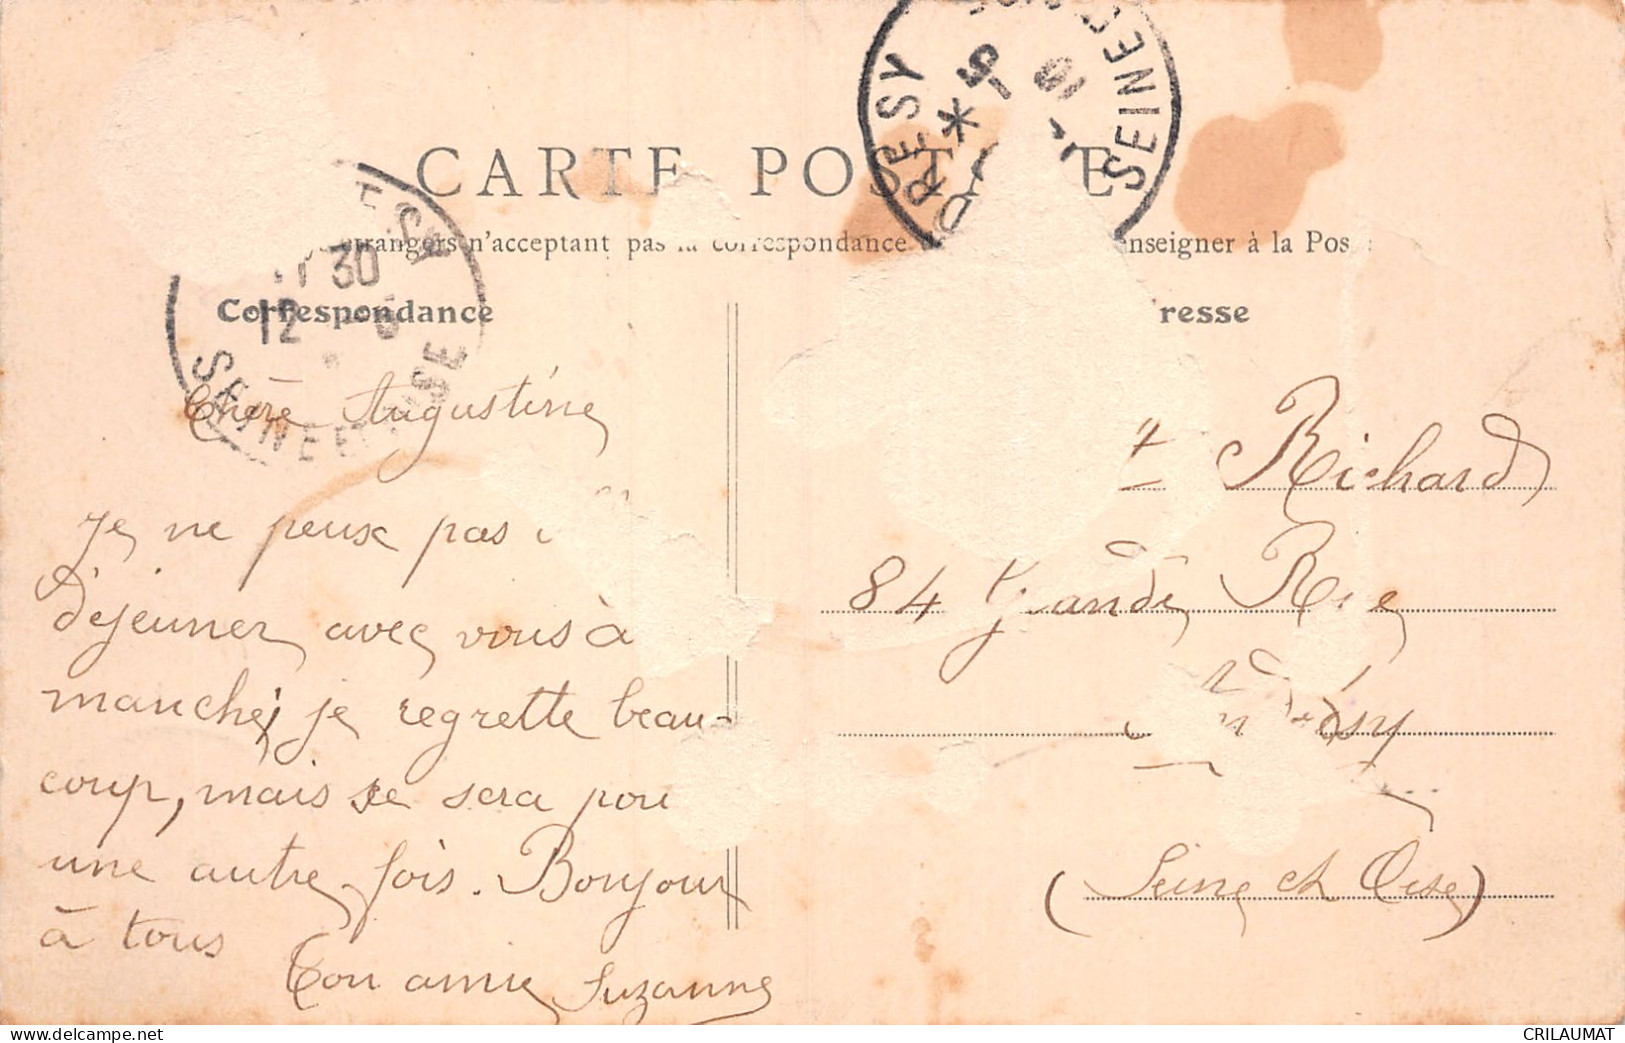 CARTE POSTALE
étrangers n'acceptant pas la correspondance
enseigner à la Pos
Correspondance
resse
ANDRESY
SEINE
30
12
SEINE ET OISE
Chère Augustine
Je ne peux pas
déjeuner avec vous à
manche, je regrette beau-
coup, mais se sera pou
une autre fois. Bonjour
à tous
Ton amie Suzanne
Richard
84 Grande Rue
Andrésy
(Seine et Oise)
www.delcampe.net
CRILAUMAT